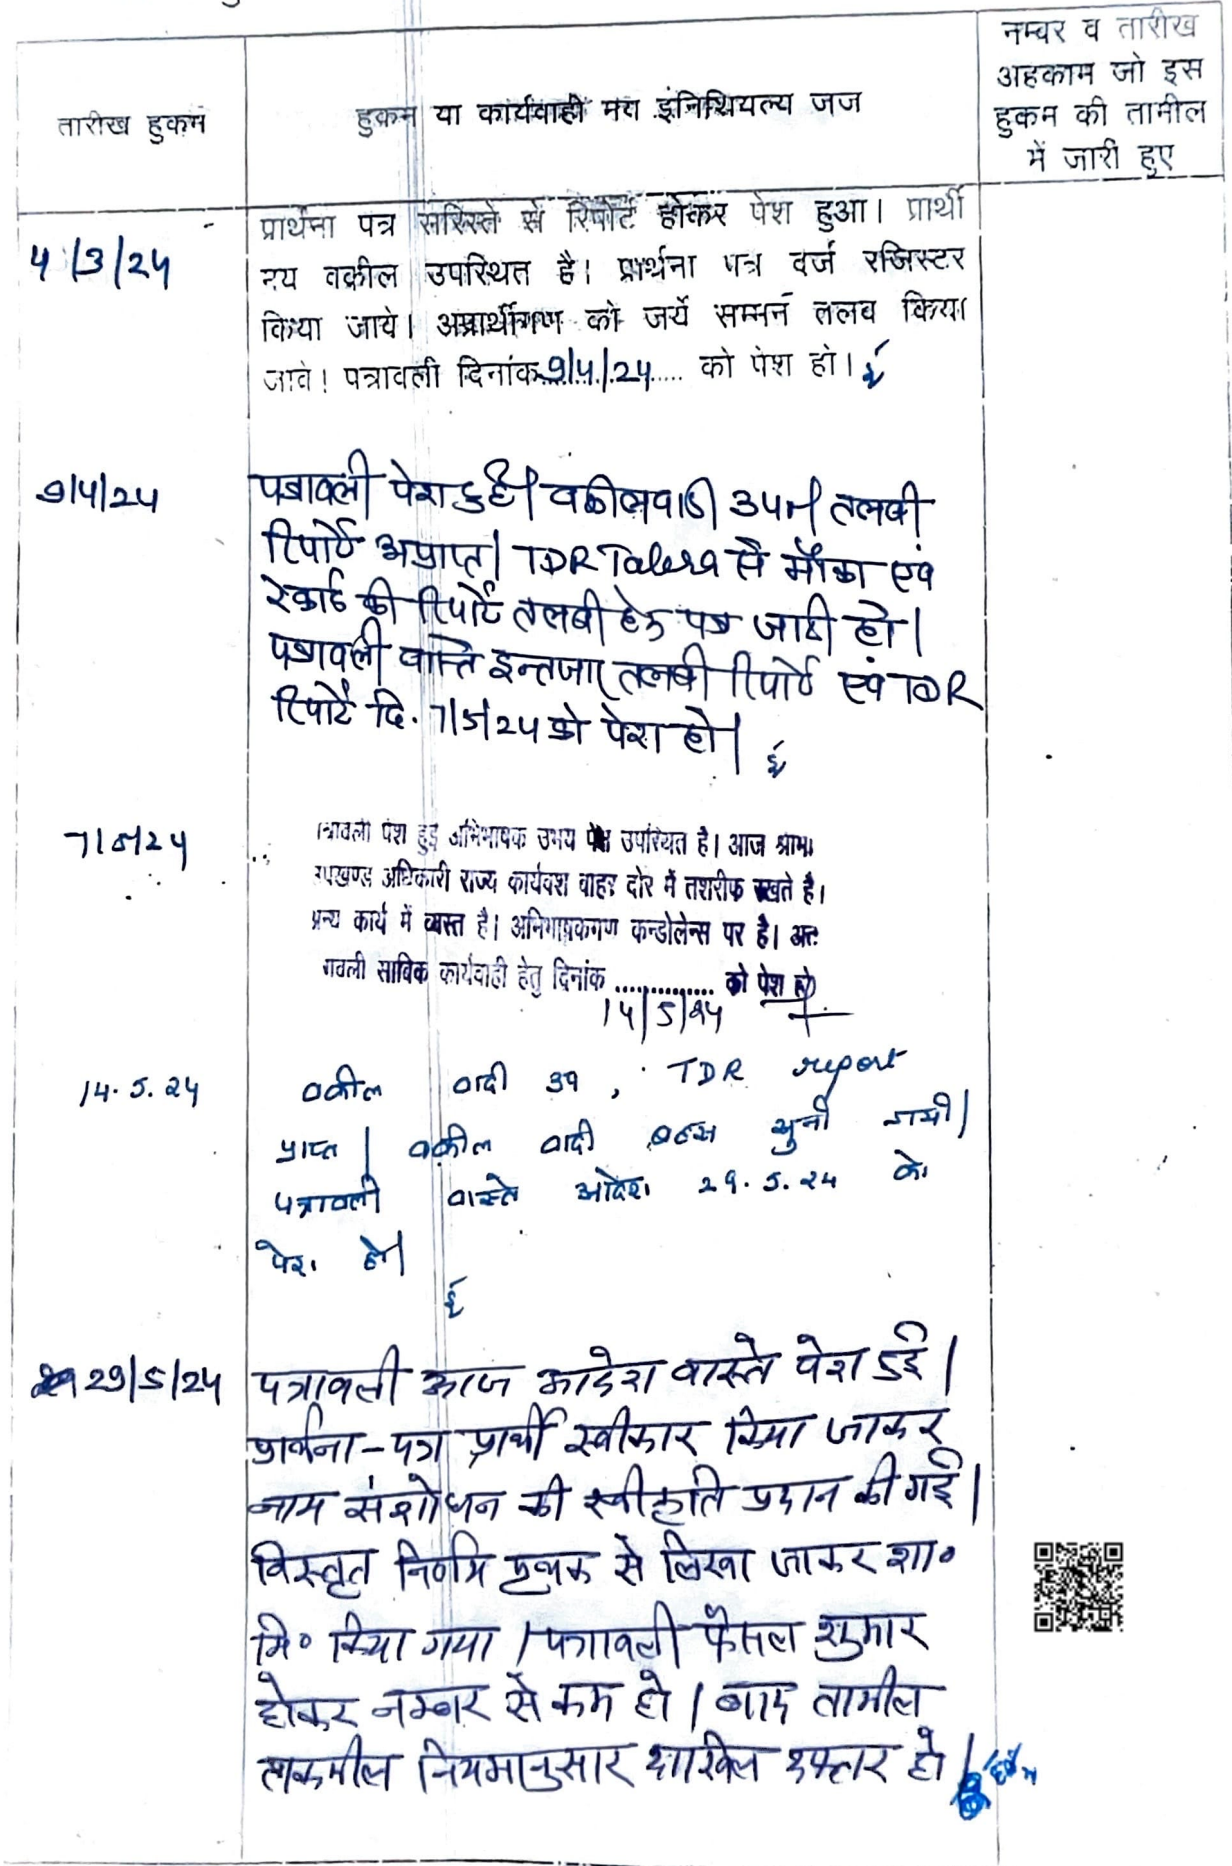 नम्बर व तारीख
अहकाम जो इस
हुकम की तामील
में जारी हुए
तारीख हुकम
हुकम या कार्यवाही मय इनिशियल्य जज
प्रार्थना पत्र सरिस्ते से रिपोर्ट होकर पेश हुआ। प्रार्थी
4/3/24
मय वकील उपस्थित है। प्रार्थना पत्र दर्ज रजिस्टर
किया जाये। अप्रार्थीगण को जर्ये सम्मन तलब किया
जावे। पत्रावली दिनांक 9/4/24 को पेश हो।
9/4/24
पत्रावली पेश हुई। वकील वादी उप। तलबी
रिपोर्ट अप्राप्त। TDR Talera से मौका एवं
रेकार्ड की रिपोर्ट तलबी हेतु पत्र जारी हो।
पत्रावली वास्ते इन्तजार तलबी रिपोर्ट एवं TDR
रिपोर्ट दि. 7/5/24 को पेश हो।
7/5/24
त्रावली पेश हुई अभिभाषक उभय पक्ष उपस्थित है। आज श्रीमा
उपखण्ड अधिकारी राज्य कार्यवश बाहर दोरे में तशरीफ रखते है।
अन्य कार्य में व्यस्त है। अभिभाषकगण कन्डोलेन्स पर है। अतः
त्रावली साबिक कार्यवाही हेतु दिनांक .............. को पेश हो
14/5/24
14.5.24
वकील वादी उप, TDR report
प्राप्त। वकील वादी बहस सुनी गयी।
पत्रावली वास्ते आदेश 29.5.24 को
पेश हो।
29/5/24
पत्रावली आज आदेश वास्ते पेश हुई।
प्रार्थना-पत्र प्रार्थी स्वीकार किया जाकर
नाम संशोधन की स्वीकृति प्रदान की गई।
विस्तृत निर्णय पृथक से लिखा जाकर शा०
मि० किया गया। पत्रावली फैसल शुमार
होकर नम्बर से कम हो। बाद तामील
तकमील नियमानुसार दाखिल दफ्तर हो।